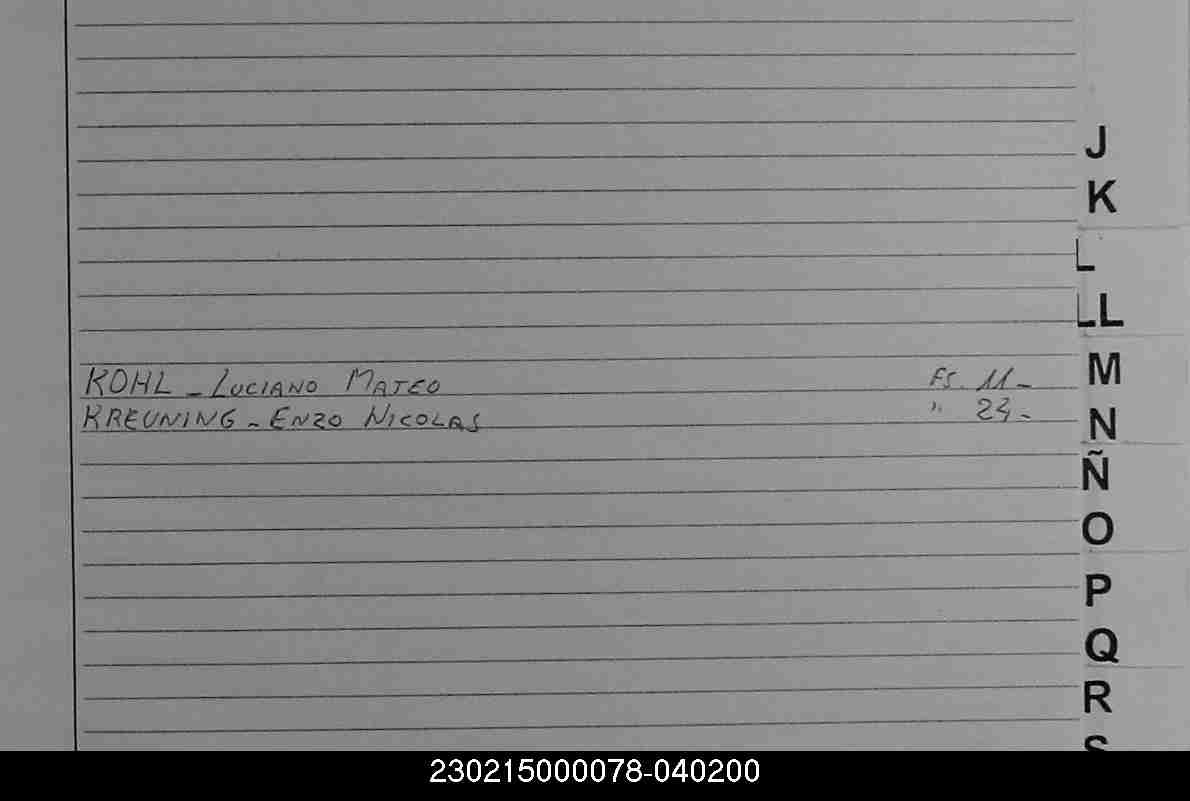 J
K
L
LL
KOHL - LUCIANO MATEO FS. 11 -
M
KREUNING - ENZO NICOLAS " 24 -
N
Ñ
O
P
Q
R
S
230215000078-040200